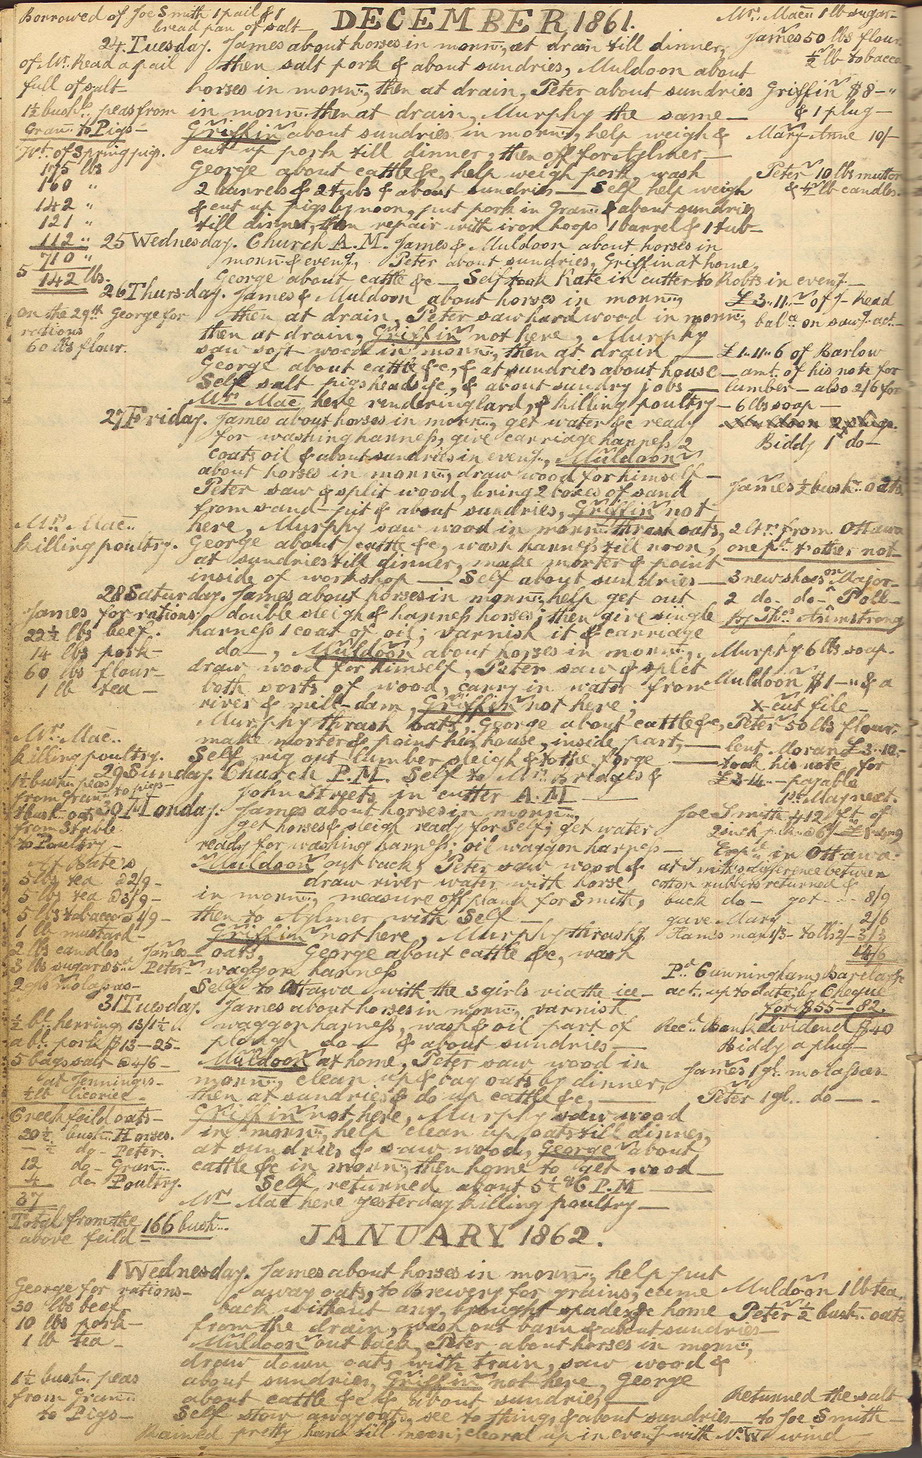 Borrowed of Joe Smith 1 pail & 1
bread pan of salt
DECEMBER 1861.
Mrs. Macn 1 lb sugar-
24 Tuesday. James about horses in mornn, at drain till dinner,
James 50 lbs flour
of Mr. Head a pail
then salt pork & about sundries, Muldoon about
½ lb tobacco
full of salt-
horses in mornn, then at drain, Peter about sundries
Griffin $8-"
1½ bushls peas from
in mornn then at drain, Murphy the same-
& 1 plug-
Grann to Pigs-
Griffin about sundries in mornn, help weigh &
Mary Anne 10/-
Wt. of 5 spring pigs.
cut up pork till dinner, then off for Aylmer-
175 lbs
George about cattle &c, help weigh pork, wash
Peter 10 lbs mutton
160 "
2 barrels & 2 tubs & about sundries- Self help weigh
& ½ lb candles.
142 "
& cut up pigs by noon, put pork in Grann & about sundries
121 "
till dinner, then repair with iron hoops 1 barrel & 1 tub-
112 "
25 Wednesday. Church A.M. James & Muldoon about horses in
710 "
mornn & eveng, Peter about sundries, Griffin at home,
5 142 lbs.
George about cattle &c- Self took Kate in cutter to Robts in eveng-
26 Thursday. James & Muldoon about horses in mornn,
£3..11.. of J. Head
on the 29th George for
then at drain, Peter saw hard wood in mornn,
balce on sawg. act-
rations
then at drain, Griffin not here, Murphy
60 lbs flour.
saw soft wood in mornn, then at drain-
£1-11-6 of Barlow
George about cattle &c, & at sundries about house-
amt. of his note for
Self salt pigs heads &c, & about sundry jobs-
lumber- also 2/6 for
Mrs. Mac here rendering lard, & killing poultry-
6 lbs soap-
27 Friday. James about horses in mornn, get water &c ready
for washing harness, give carriage harness 2
Biddy 1 do-
coats oil & about sundries in eveng, Muldoon
about horses in mornn, draw wood for himself-
Peter saw & split wood, bring 2 boxes of sand
James ½ bushl. oats
from sand-pit & about sundries, Griffin not
Mrs. Mac..
here, Murphy saw wood in mornn thrash oats,
2 ltrs from Ottawa
killing poultry.
George about cattle &c, wash harness till noon,
one pd. & other not-
at sundries till dinner, make morter & point
inside of workshop- Self about sundries-
3 new shoes on Major-
28 Saturday. James about horses in mornn, help get out
2 do- do- Poll-
James for rations.
double sleigh & harness horses, then give single
by Thos Armstrong
22½ lbs beef-
harness 1 coat of oil; varnish it & carriage
14 lbs pork-
do-, Muldoon about horses in mornn,
Murphy 6 lbs soap-
60 lbs flour-
draw wood for himself, Peter saw & split
Muldoon $1-" & a
1 lb tea-
both sorts of wood, carry in water from
x-cut file-
river & mill-dam, Griffin not here,
Murphy thrash oats, George about cattle &c,
Peter 50 lbs flour
Mrs. Mac..
make morter & point hen house, inside part,-
lent Moran £3-10,-
killing poultry.
Self rig out lumber sleigh & to the forge-
took his note for
1½ bushn peas
29 Sunday. Church P.M. Self to Mr. Bridge's &
£3-14- payable
from Grann to pigs-
John Heyets in cutter A.M-
1st May next.
30 Monday. James about horses in mornn,
Joe Smith 412 ft. of
from Stable
get horses & sleigh ready for Self, get water
to Poultry-
ready for washing harness, oil waggon harness-
in Ottawa
Muldoon out back, Peter saw wood &
at Smith's difference between
5 lbs tea @ 2/9-
draw river water with horse
cotton rubbers returned &
5 lbs tea @ 3/9-
in mornn, measure off plank for Smith,
back do- got- 8/9
5 lbs tobacco @ 1/9-
then to Aylmer with Self-
gave Mary- 2/6
1 lb mustard-
Griffin not here, Murphy thrashg
3/3
2 lbs candles James-
oats, George about cattle &c, wash
14/6
3 lbs sugar @ 5d Peter
waggon harness
Pd. Cunningham & Carclagh
2 gls molasses-
Self to Ottawa with the 3 girls via the ice-
act. up to date by Cheque
31 Tuesday. James about horses in mornn, varnish
for $55-82.
½ bl. herring 13/1½
waggon harness, wash & oil part of
Recd Bank dividend $40
a bl. pork $13-25.
plough do- & about sundries-
Biddy a plug-
5 bags salt @ 4/6-
Muldoon at home, Peter saw wood in
at Jennings-
mornn, clean up & bag oats by dinner,
James 1 gl. molasses
½ lb licorice-
then at sundries & do up cattle &c,-
Peter 1 gl. do-
Creek feild oats-
Griffin not here, Murphy saw wood
20½ bushn Horses.
in mornn, help clean up oats till dinner,
½ do- Peter.
at sundries & saw wood, George about
12 do- Grann..
cattle &c in mornn, then home to get wood-
4 do- Poultry.
Self returned about 5½ P.M-
37
Mrs. Mac here yesterday killing poultry-
Total from the
above feild- 166 bush-
JANUARY 1862.
1 Wednesday. James about horses in mornn, help put
George for rations-
away oats, to Brewery for grains, came
Muldoon 1 lb tea,
30 lbs beef
back without any, brought spades &c home
Peter ½ bushn oats
10 lbs pork-
from the drain, wash out barn & about sundries-
1 lb tea-
Muldoon out back, Peter about horses in mornn,
draw down oats with train, saw wood &
1½ bushn peas
about sundries, Griffin not here, George
from Grann
about cattle &c & about sundries,-
Returned the salt
to Pigs-
Self stow away oats, see to things, & about sundries-
to Joe Smith-
Rained pretty hard till noon; cleared up in eveng with N.W. wind-